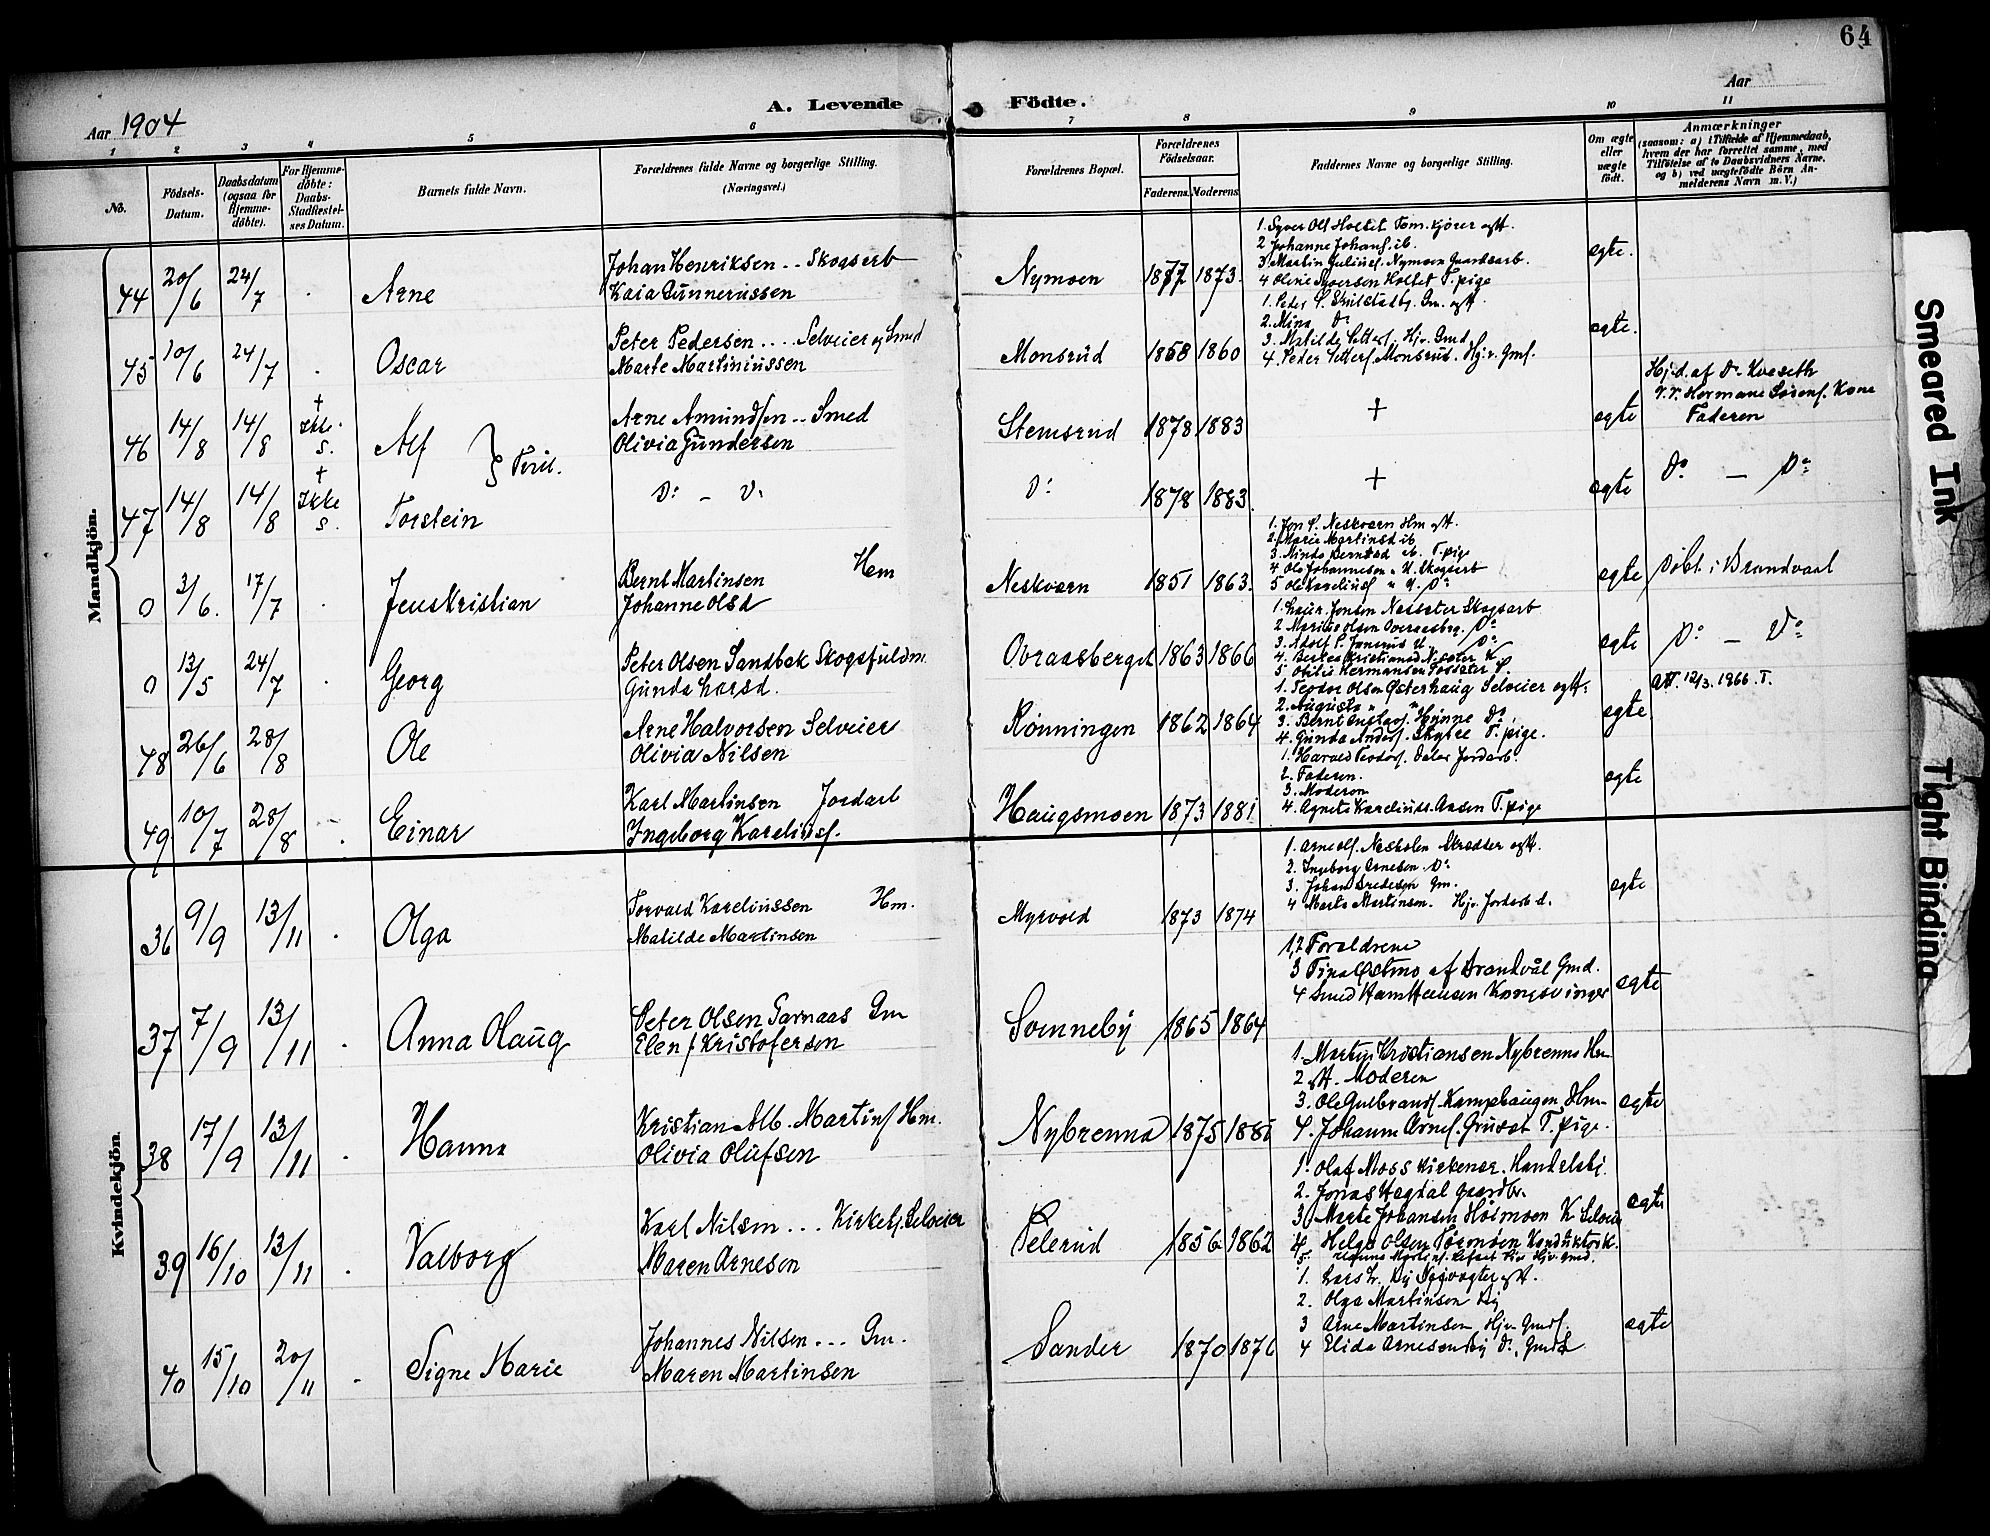 64
Aar 1904
A. Levende
Födte.
Aar
1 2 3 4 5 6 7 8 9 10 11
No.
Födsels-Datum.
Daabsdatum (ogsaa for Hjemme-döbte).
For Hjemme-döbte: Daabs-Stadfæstel-ses Datum.
Barnets fulde Navn.
Forældrenes fulde Navne og borgerlige Stilling. (Næringsvei.)
Forældrenes Bopæl.
Forældrenes Födselsaar.
Faderens. Moderens.
Faddernes Navne og borgerlige Stilling.
Om ægte eller uægte födt.
Anmærkninger (saasom: a) i Tilfælde af Hjemmedaab, hvem der har forrettet samme, med Tilföielse af to Daabsvidners Navne, og b) ved uægtefödte Börn An-melderens Navn m. V.)
Mandkjön.
44 20/6 24/7 . Arne
Johan Henriksen .. Skogsarb
Kaia Gunnerussen
Nymoen 1877 1873.
1. Syver Ols Holtet Töm.kjörer gft.
2 Johanne Johans. ib.
3. Martin Juliusf. Nymoen Gaardsarb.
4 Oline Syversen Holtet T. pige
egte.
45 10/6 24/7 . Oscar
Peter Pedersen .... Selveier og Smed
Marte Martiniussen
Monsrud 1858 1860
2. Mina Do
4. Peder Monsrud. Hj.v. Gmf.
egte.
46 14/8 14/8 + Ikke S. Alf } Tvil.
Arne Amundsen .. Smed
Olivia Gundersen
Stemsrud 1878 1883 + egte
Hj.d. af Dr. Kveseth
V.V. Hermane Sörens. Kone
Faderen
47 14/8 14/8 + Ikke S. Torstein
Do - Do
Do 1878 1883. + egte Do - Do
0 3/6. 17/7 . Jens Kristian
Bernt Martinsen Hem
Johanne Olsd
Neskværn 1851 1863.
1. Jon P. Neskværn Hm gft.
2. Marie Martinsd ib
3. Minda Berntsd ib. T. pige
4 Ole Johannesen " U. Skogsarb
5 Ole Kareliusf " U. Do
egte Döbt i Brandvaal
0 13/5 24/7 . Georg
Peter Olsen Sandbæk Skogsfuldm.
Gunda Larsd.
Ovraasberget 1863 1866
1. Laur. Jonsen Næssæter Skogsarb
2. Olsen Overaasberg. Do
5 Otilie Hermansen
egte Do - Do
Att. 12/3. 1966. T.
48 26/6 28/8 Ole
Arne Halvorsen Selveier
Olivia Nilsen
Rönningen 1862 1864
1. Teodor Olsen Østerhaug Selveier gft.
2. Augusta " "
3. Bernt Gustavs. Hynne Do
4. Gunda Anders. T. pige.
egte
49 10/7 28/8 . Einar
Karl Martinsen Jordarb
Ingeborg Kareliusf.
Haugsmoen 1873 1881
1. Harald Teodorf. Daler Jordarb.
2. Faderen.
3. Moderen
4. Agnete Kareliuss. Aasen T. pige
egte
Kvindekjön.
36 9/9 13/11 . Olga
Torvald Kareliussen Hm.
Matilde Martinsen
Myrvold 1873 1874
1. Arne Olf. Neskolen Skrædder gft.
2. Ingeborg Arnesen. Do
3. Johan Gm.
4 Marte Martinsen. Hjv. Jordarb d.
egte
37 7/9 13/11 . Anna Olaug
Peter Olsen Garnaas Gm
Elen f Kristofersen
Sömneby 1865 1864
1,2 Forældrene
3 Tina Østmo af Brandvål Gmd.
4 Smed Hans Hansen Kongsvinger
egte
38 17/9 13/11 . Hanna
Kristian Alb. Martinf Hm.
Olivia Olufsen
Nybrenna 1875 1881
1. Martin Kristiansen Nybrenna Hm
2 gft. Moderen
3. Ole Gulbrands. Kamphaugen Hm
4. Johanne Arnef. Gruset T. pige.
egte
39 16/10 13/11 . Valborg
Karl Nilsen ... Kirketj. Selveier
Maren Arnesen
Pelerud 1856 1862
1. Olaf Moss Kirkener. Handelsbj.
2. Jonas Hagdal gaardbr.
3. Marte Johansen Hoimoen K Selveier
4. Helge Olsen Konduktör K.
egte
40 15/10 20/11 . Signe Marie
Johannes Nilsen ... Gm.
Maren Martinsen
Sander 1870 1876
1. Lars L. By gft.
2. Olga Martinsen By
3 Arne Martinsen Hjv. Gmdf.
4 Elida Arnesen By Do. Gmd
egte
Smeared Ink
Tight Binding